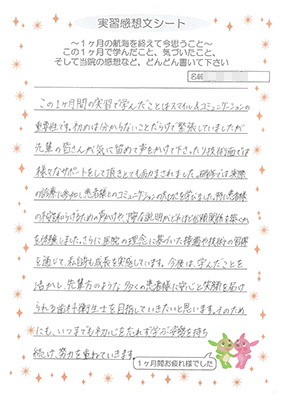 実習感想文シート
～1ヶ月の航海を終えて今思うこと～
この1ヶ月で学んだこと、気づいたこと、
そして当院の感想など、どんどん書いて下さい
名前
この1ヶ月間の実習で学んだことはスマイル&コミュニケーションの
重要性です。初めは分からないことだらけで緊張していましたが
先輩の皆さんが気に留めて声をかけて下さったり技術面では
様々なサポートをして頂きとても励まされました。研修では実際
の診療に参加し患者様とのコミュニケーションの大切さを学びました。特に患者様
の不安を和らげるための声かけや、丁寧な説明がどれほど信頼関係を築くか
を体験しました。さらに医院の理念に基づいた接遇や技術の習得
を通じて、私自身も成長を実感しています。今後は、学んだことを
活かし、先輩方のような多くの患者様に安心と笑顔を届け
られる歯科衛生士を目指していきたいと思います。そのため
にも、いつまでも初心を忘れず学ぶ姿勢を持ち
続け、努力を重ねていきます。
1ヶ月間お疲れ様でした